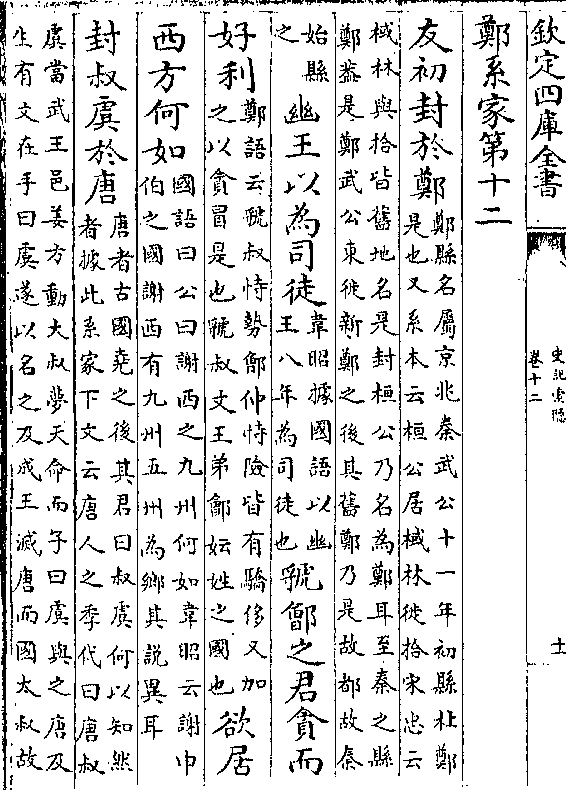 欽定四庫全書
史記索隱
卷十二
十一
鄭系家第十二
友初封於鄭
鄭縣名屬京兆秦武公十一年初縣杜鄭
是也又系本云桓公居棫林徙拾宋忠云
棫林與拾皆舊地名是封桓公乃名為鄭耳至秦之縣
鄭葢是鄭武公東徙新鄭之後其舊鄭乃是故都故秦
始縣
之
幽王以為司徒
韋昭據國語以幽
王八年為司徒也
虢鄶之君貪而
好利
鄭語云虢叔恃勢鄶仲恃險皆有驕侈又加
之以貪冒是也虢叔文王弟鄶妘姓之國也
欲居
西方何如
國語曰公曰謝西之九州何如韋昭云謝申
伯之國謝西有九州五州為鄉其説異耳
封叔虞於唐
唐者古國堯之後其君曰叔虞何以知然
者據此系家下文云唐人之季代曰唐叔
虞當武王邑姜方動大叔夢天命而子曰虞與之唐及
生有文在手曰虞遂以名之及成王滅唐而國太叔故